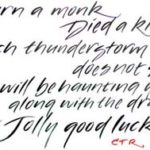 rn a monk
Died a k
thunderstorm
does not
will be haunting
along with the dr
Jolly good luck
CTR